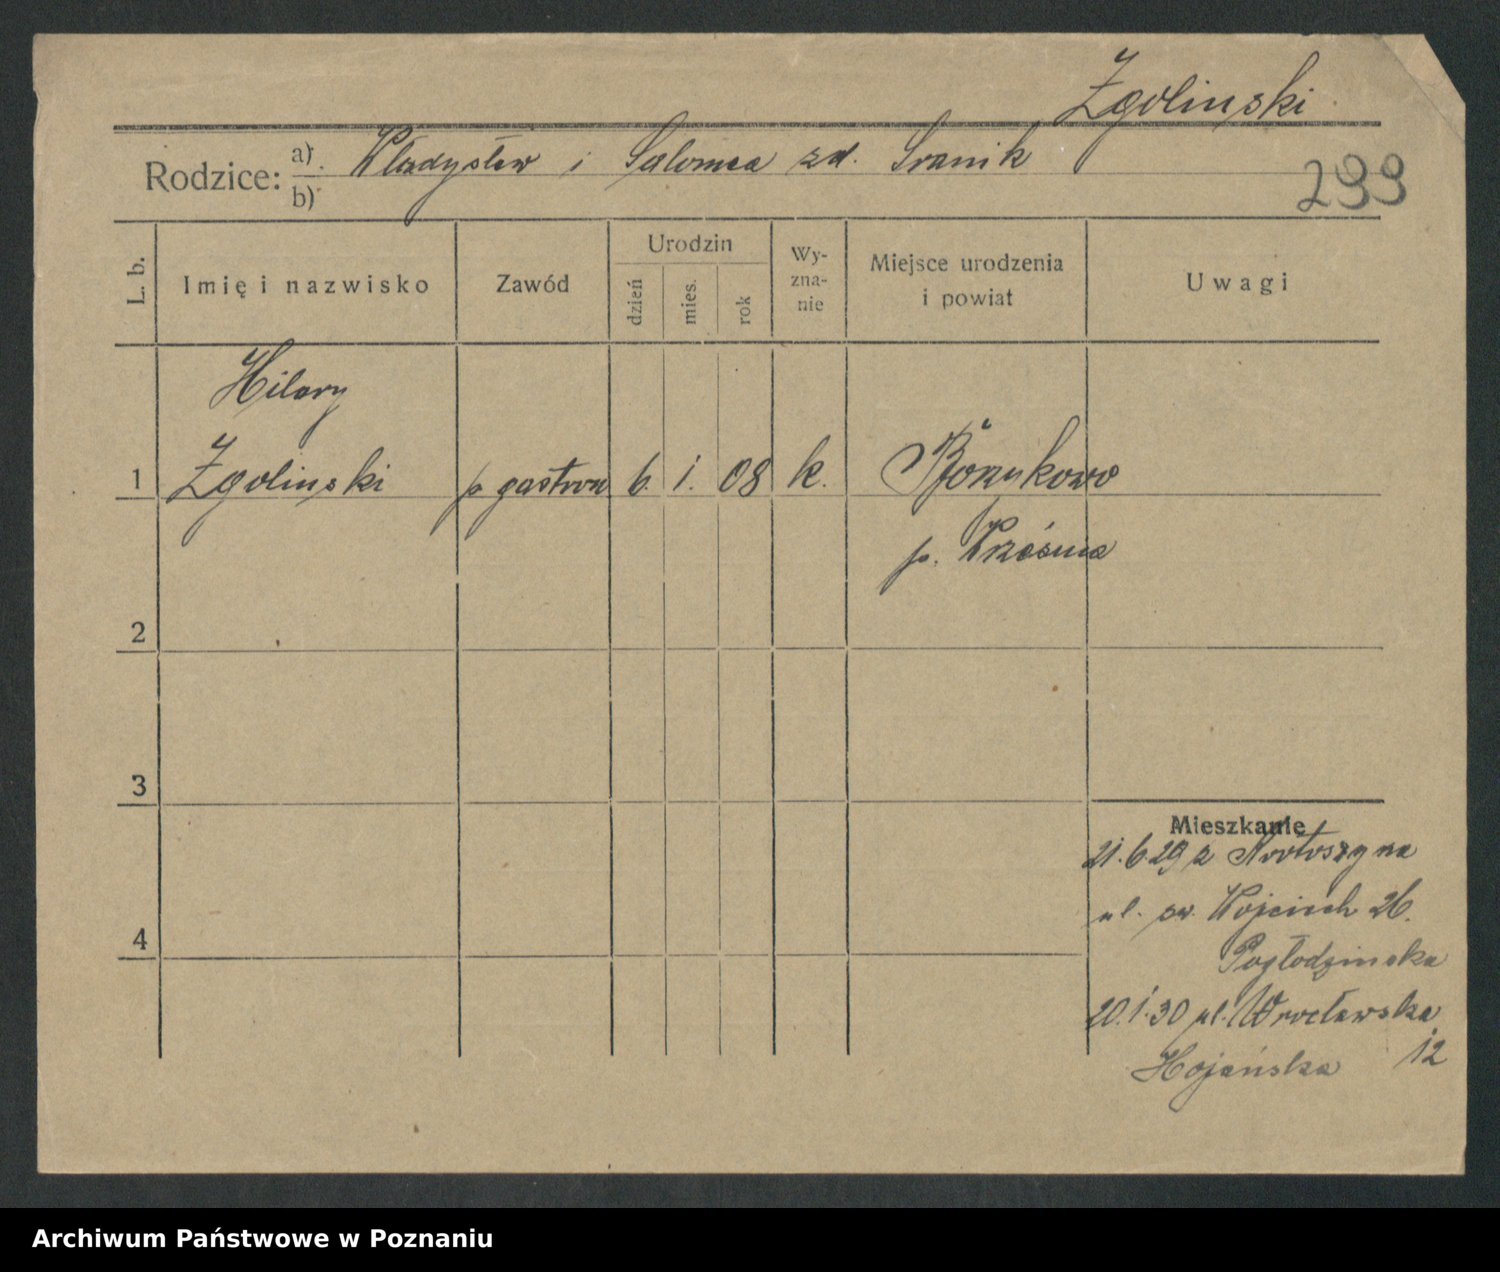 Zgolinski
Rodzice: a) Władysław i Salomea zd. Sranik
b)
299
L. b.
Imię i nazwisko
Zawód
Urodzin
dzień
mies.
rok
Wy-
zna-
nie
Miejsce urodzenia
i powiat
Uwagi
Hilary
1 Zgolinski p gastron 6. 1. 08 k.
p. Września
2
3
4
Mieszkanie
21.6.29 z Krotoszyna
ul. św. Wojciech 26.
20.1.30 ul. Wrocławska
Hojańska 12
Archiwum Państwowe w Poznaniu